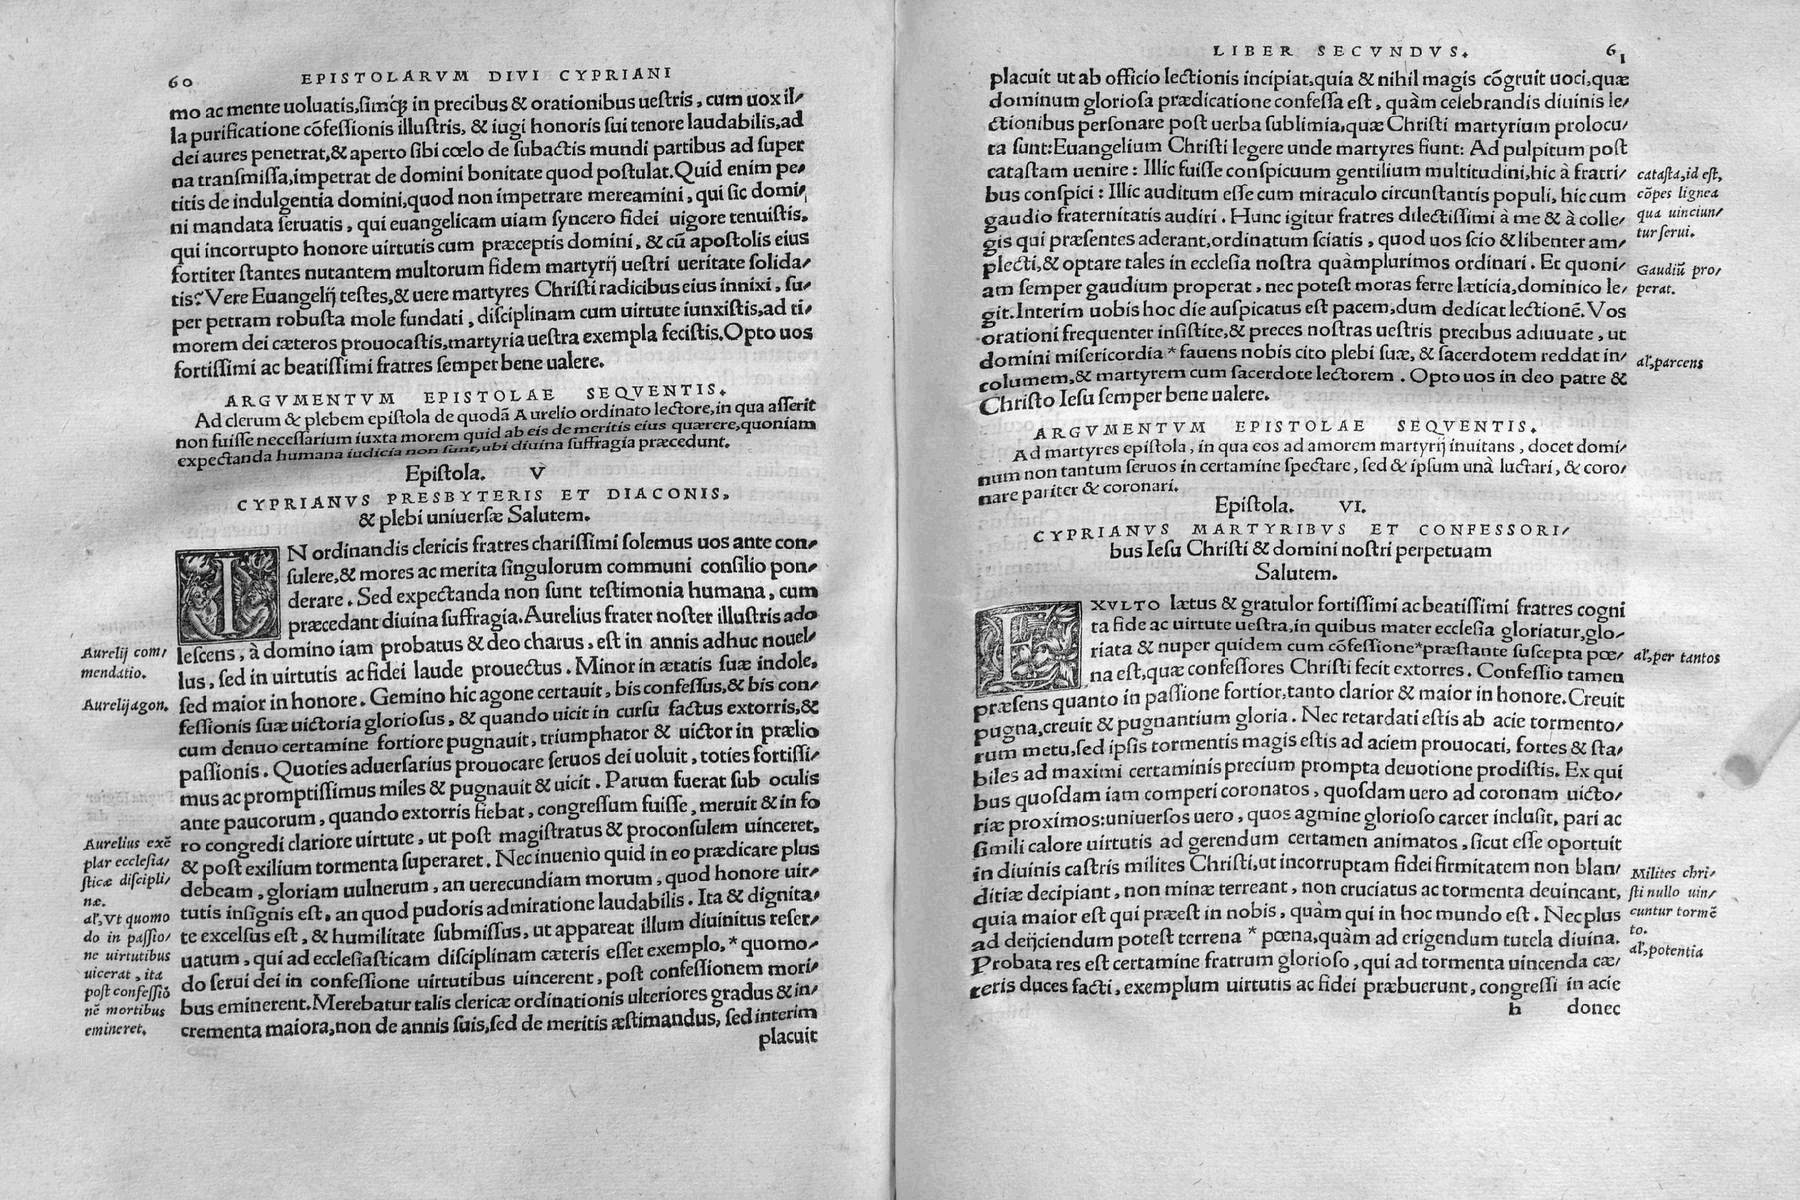 60 EPISTOLARVM DIVI CYPRIANI
mo ac mente uoluatis,simq́ꝫ in precibus & orationibus uestris, cum uox il/
la purificatione cõfessionis illustris, & iugi honoris sui tenore laudabilis,ad
dei aures penetrat,& aperto sibi cœlo de subactis mundi partibus ad super
na transmissa,impetrat de domini bonitate quod postulat.Quid enim pe/
titis de indulgentia domini,quod non impetrare mereamini, qui sic domi/
ni mandata seruatis, qui euangelicam uiam syncero fidei uigore tenuistis,
qui incorrupto honore uirtutis cum præceptis domini, & cũ apostolis eius
fortiter stantes nutantem multorum fidem martyrij uestri ueritate solida/
tis? Vere Euangelij testes,& uere martyres Christi radicibus eius innixi, su/
per petram robusta mole fundati, disciplinam cum uirtute iunxistis,ad ti/
morem dei cæteros prouocastis,martyria uestra exempla fecistis.Opto uos
fortissimi ac beatissimi fratres semper bene ualere.
ARGVMENTVM EPISTOLAE SEQVENTIS.
Ad clerum & plebem epistola de quodã Aurelio ordinato lectore,in qua asserit
non fuisse necessarium iuxta morem quid ab eis de meritis eius quærere,quoniam
expectanda humana iudicia non sunt,ubi diuina suffragia præcedunt.
Epistola. V
CYPRIANVS PRESBYTERIS ET DIACONIS,
& plebi uniuersæ Salutem.
IN ordinandis clericis fratres charissimi solemus uos ante con/
sulere,& mores ac merita singulorum communi consilio pon/
derare. Sed expectanda non sunt testimonia humana, cum
præcedant diuina suffragia.Aurelius frater noster illustris ado
lescens, à domino iam probatus & deo charus, est in annis adhuc nouel/
lus, sed in uirtutis ac fidei laude prouectus. Minor in ætatis suæ indole,
sed maior in honore. Gemino hic agone certauit, bis confessus,& bis con/
fessionis suæ uictoria gloriosus, & quando uicit in cursu factus extorris,&
cum denuo certamine fortiore pugnauit, triumphator & uictor in prælio
passionis. Quoties aduersarius prouocare seruos dei uoluit, toties fortissi/
mus ac promptissimus miles & pugnauit & uicit. Parum fuerat sub oculis
ante paucorum, quando extorris fiebat, congressum fuisse, meruit & in fo
ro congredi clariore uirtute, ut post magistratus & proconsulem uinceret,
& post exilium tormenta superaret. Nec inuenio quid in eo prædicare plus
debeam, gloriam uulnerum, an uerecundiam morum, quod honore uir/
tutis insignis est, an quod pudoris admiratione laudabilis. Ita & dignita/
te excelsus est, & humilitate submissus, ut appareat illum diuinitus reser/
uatum, qui ad ecclesiasticam disciplinam cæteris esset exemplo, * quomo/
do serui dei in confessione uirtutibus uincerent, post confessionem mori/
bus eminerent.Merebatur talis clericæ ordinationis ulteriores gradus & in/
crementa maiora,non de annis suis,sed de meritis æstimandus, sed interim
placuit
Aurelij com/
mendatio.
Aurelij agon.
Aurelius exẽ
plar ecclesia/
sticæ discipli/
næ.
al', Vt quomo
do in passio/
ne uirtutibus
uicerat, ita
post confessiõ
nẽ mortibus
emineret.
LIBER SECVNDVS. 61
placuit ut ab officio lectionis incipiat,quia & nihil magis cõgruit uoci,quæ
dominum gloriosa prædicatione confessa est, quàm celebrandis diuinis le/
ctionibus personare post uerba sublimia,quæ Christi martyrium prolocu/
ta sunt:Euangelium Christi legere unde martyres fiunt: Ad pulpitum post
catastam uenire: Illic fuisse conspicuum gentilium multitudini,hic à fratri/
bus conspici: Illic auditum esse cum miraculo circunstantis populi, hic cum
gaudio fraternitatis audiri. Hunc igitur fratres dilectissimi à me & à colle/
gis qui præsentes aderant,ordinatum sciatis, quod uos scio & libenter am/
plecti,& optare tales in ecclesia nostra quàmplurimos ordinari. Et quoni/
am semper gaudium properat, nec potest moras ferre læticia,dominico le/
git.Interim uobis hoc die auspicatus est pacem,dum dedicat lectionẽ. Vos
orationi frequenter insistite,& preces nostras uestris precibus adiuuate, ut
domini misericordia * fauens nobis cito plebi suæ, & sacerdotem reddat in/
columem,& martyrem cum sacerdote lectorem. Opto uos in deo patre &
Christo Iesu semper bene ualere.
ARGVMENTVM EPISTOLAE SEQVENTIS.
Ad martyres epistola, in qua eos ad amorem martyrij inuitans, docet domi/
num non tantum seruos in certamine spectare, sed & ipsum unà luctari, & coro/
nare pariter & coronari.
Epistola. VI.
CYPRIANVS MARTYRIBVS ET CONFESSORI/
bus Iesu Christi & domini nostri perpetuam
Salutem.
EXVLTO lætus & gratulor fortissimi ac beatissimi fratres cogni
ta fide ac uirtute uestra,in quibus mater ecclesia gloriatur,glo/
riata & nuper quidem cum cõfessione*præstante suscepta pœ/
na est,quæ confessores Christi fecit extorres. Confessio tamen
præsens quanto in passione fortior,tanto clarior & maior in honore.Creuit
pugna,creuit & pugnantium gloria. Nec retardati estis ab acie tormento/
rum metu,sed ipsis tormentis magis estis ad aciem prouocati, fortes & sta/
biles ad maximi certaminis precium prompta deuotione prodistis. Ex qui
bus quosdam iam comperi coronatos, quosdam uero ad coronam uicto/
riæ proximos:uniuersos uero, quos agmine glorioso carcer inclusit, pari ac
simili calore uirtutis ad gerendum certamen animatos, sicut esse oportuit
in diuinis castris milites Christi,ut incorruptam fidei firmitatem non blan/
ditiæ decipiant, non minæ terreant, non cruciatus ac tormenta deuincant,
quia maior est qui præest in nobis, quàm qui in hoc mundo est. Nec plus
ad deijciendum potest terrena * pœna,quàm ad erigendum tutela diuina.
Probata res est certamine fratrum glorioso, qui ad tormenta uincenda cæ/
teris duces facti, exemplum uirtutis ac fidei præbuerunt, congressi in acie
h donec
catasta,id est,
cõpes lignea
qua uinciun/
tur serui.
Gaudiũ pro/
perat.
al',parcens
al',per tantos
Milites chri/
sti nullo uin/
cuntur tormẽ
to.
al',potentia